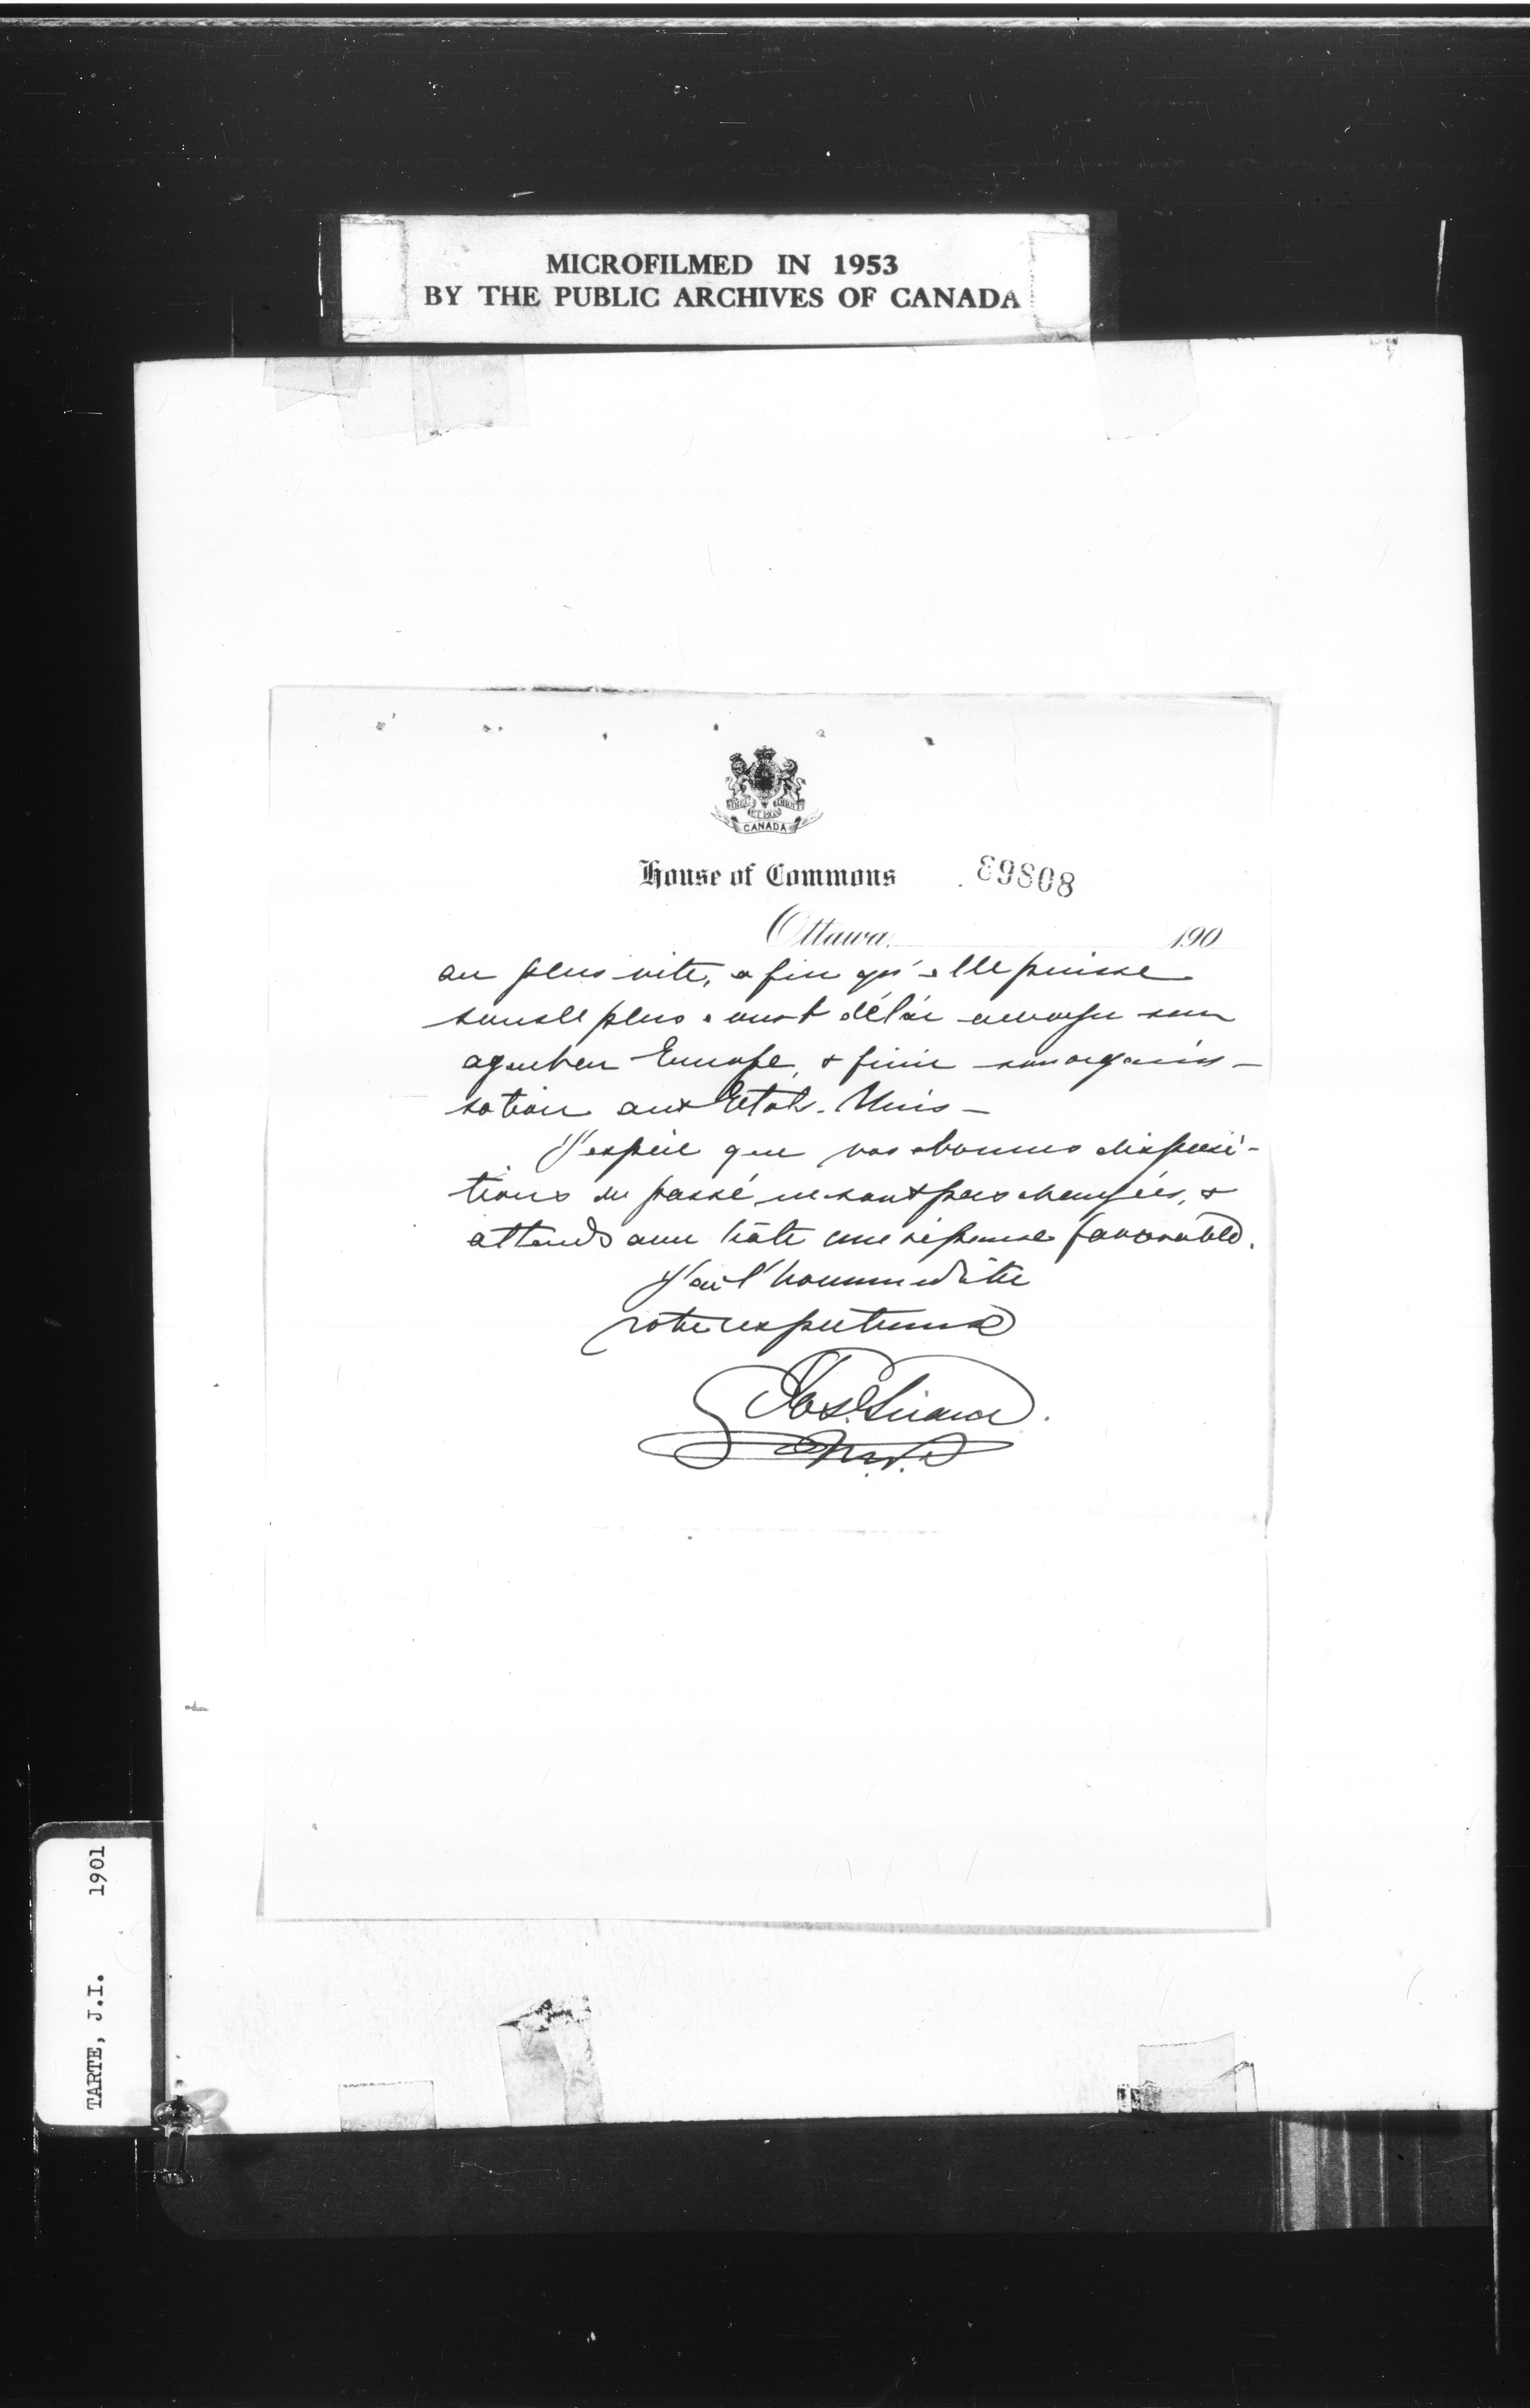 MICROFILMED IN 1953
BY THE PUBLIC ARCHIVES OF CANADA
DIEU DROIT
ET MON
CANADA
House of Commons 89808
Ottawa, 190
au plus vite, afin qu'elle puisse
sous le plus court délai envoyer son
agent en Europe, & finir son organi-
sation aux Etats-Unis —
J'espère que vos bonnes disposi-
tions du passé ne sont pas changées, &
attends avec hâte une réponse favorable.
J'ai l'honneur d'être
votre respectueux
Jos. Girard
M.P.
TARTE, J.I. 1901